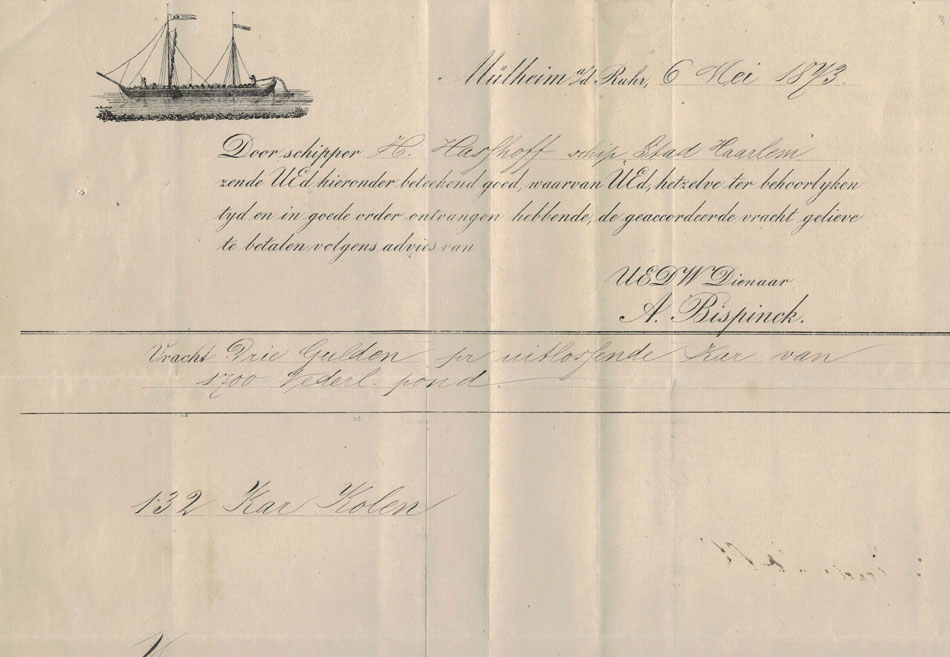 Mülheim a/d Ruhr, 6 Mei 1873.
Door schipper H. Hasshoff schip Stad Haarlem
zende UEd hieronder beteekend goed, waarvan UEd, hetzelve ter behoorlyken
tyd en in goede order ontvangen hebbende, de geaccordeerde vracht gelieve
te betalen volgens advies van
UEDW Dienaar
A. Bispinck.
Vracht Drie Gulden pr uitlossende Kar van
1700 Nederl. pond.
132 Kar Kolen